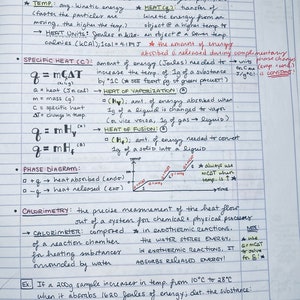 • TEMP.: avg. kinetic energy
(faster the particles are
moving, the higher the temp.)
HEAT (q): transfer of
kinetic energy from an
object @ a higher temp to
→ HEAT UNITS: Joules / kilo-
calories (kCAL)
an object @ a lower temp
* the amount of energy
absorbed or released during complementary
phase changes
is constant
• SPECIFIC HEAT (C): amount of energy (Joules) needed to
increase the temp. of 1g of a substance
by 1°C
q = mCΔT
q = heat (J or kCal)
m = mass (g)
C = specific heat
ΔT = change in temp
→ HEAT OF VAPORIZATION
(Hv): amt. of energy absorbed when
1g of a liquid is changed to vapor
(or vice versa, 1g of gas → liquid)
q = mHv
→ HEAT OF FUSION
q = mHf
(Hf): amt. of energy needed to convert
1g of a solid into a liquid
• PHASE DIAGRAM:
+q → heat absorbed (endo)
-q → heat released (exo)
TIME
* always use
mCΔT
when
temp is ↑
• CALORIMETRY: the precise measurement of the heat flow
out of a system for chemical & physical processes
→ CALORIMETER: comprised
of a reaction chamber
for heating substances
surrounded by water
* IN ENDOTHERMIC REACTIONS,
THE WATER STORES ENERGY.
IN EXOTHERMIC REACTIONS, IT
ABSORBS RELEASED ENERGY!
Ex. If a 200g sample increases in temp. from 10°C to 28°C
when it absorbs 1620 Joules of energy, det. the substance